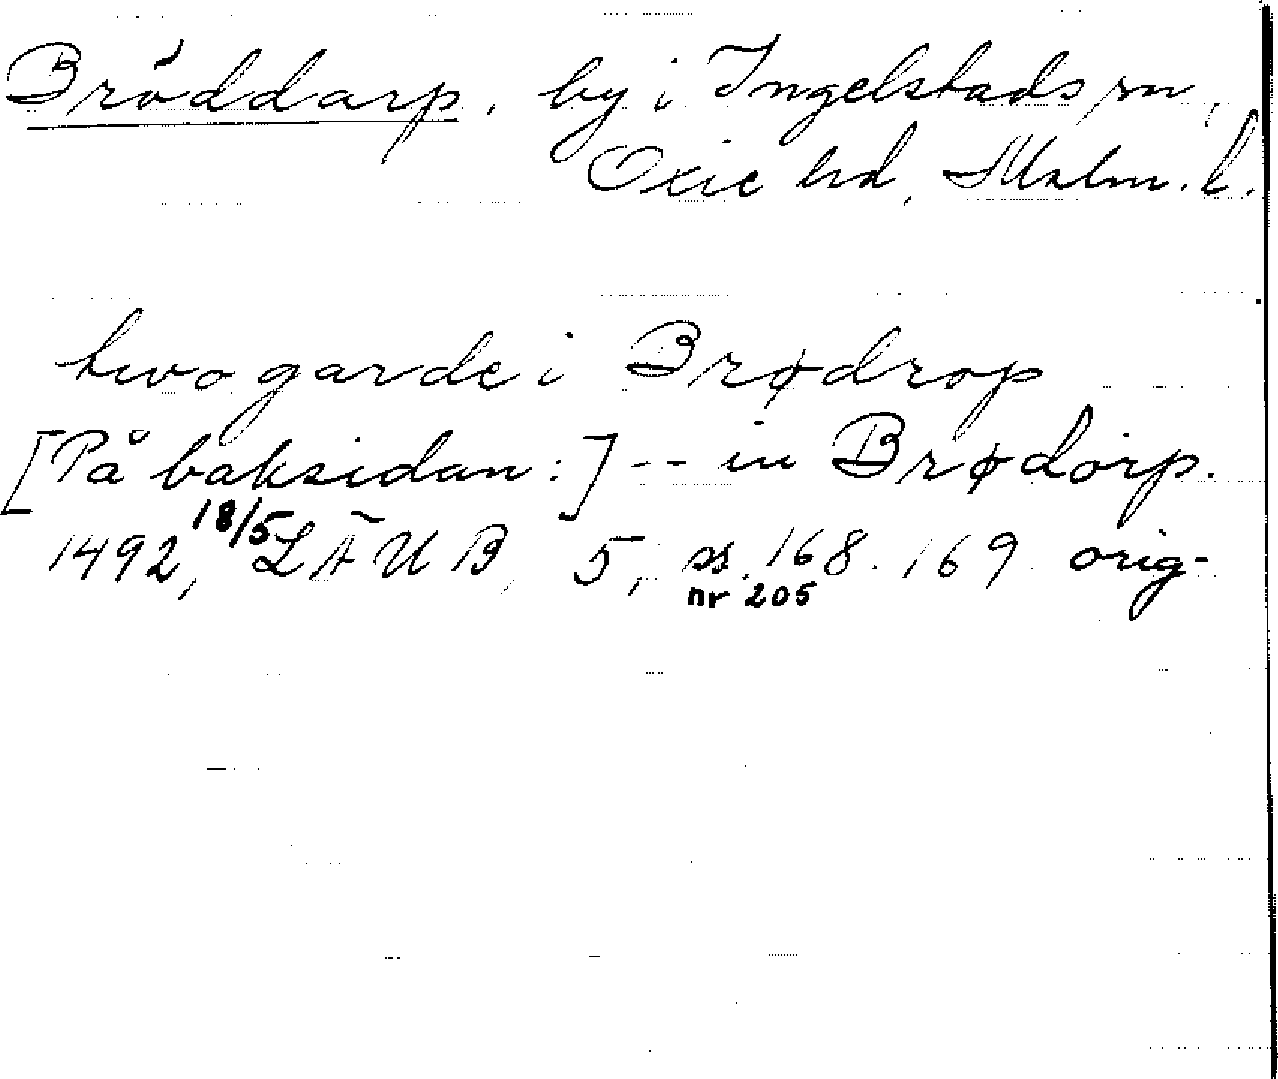 Bröddarp, by i Ingelstads sn,
Oxie hd, Malm. l.
two garde i Brødrop
[På baksidan:] -- in Brødorp.
1492, 18/5 LÄUB, 5, ss. 168. 169 orig-
nr 205